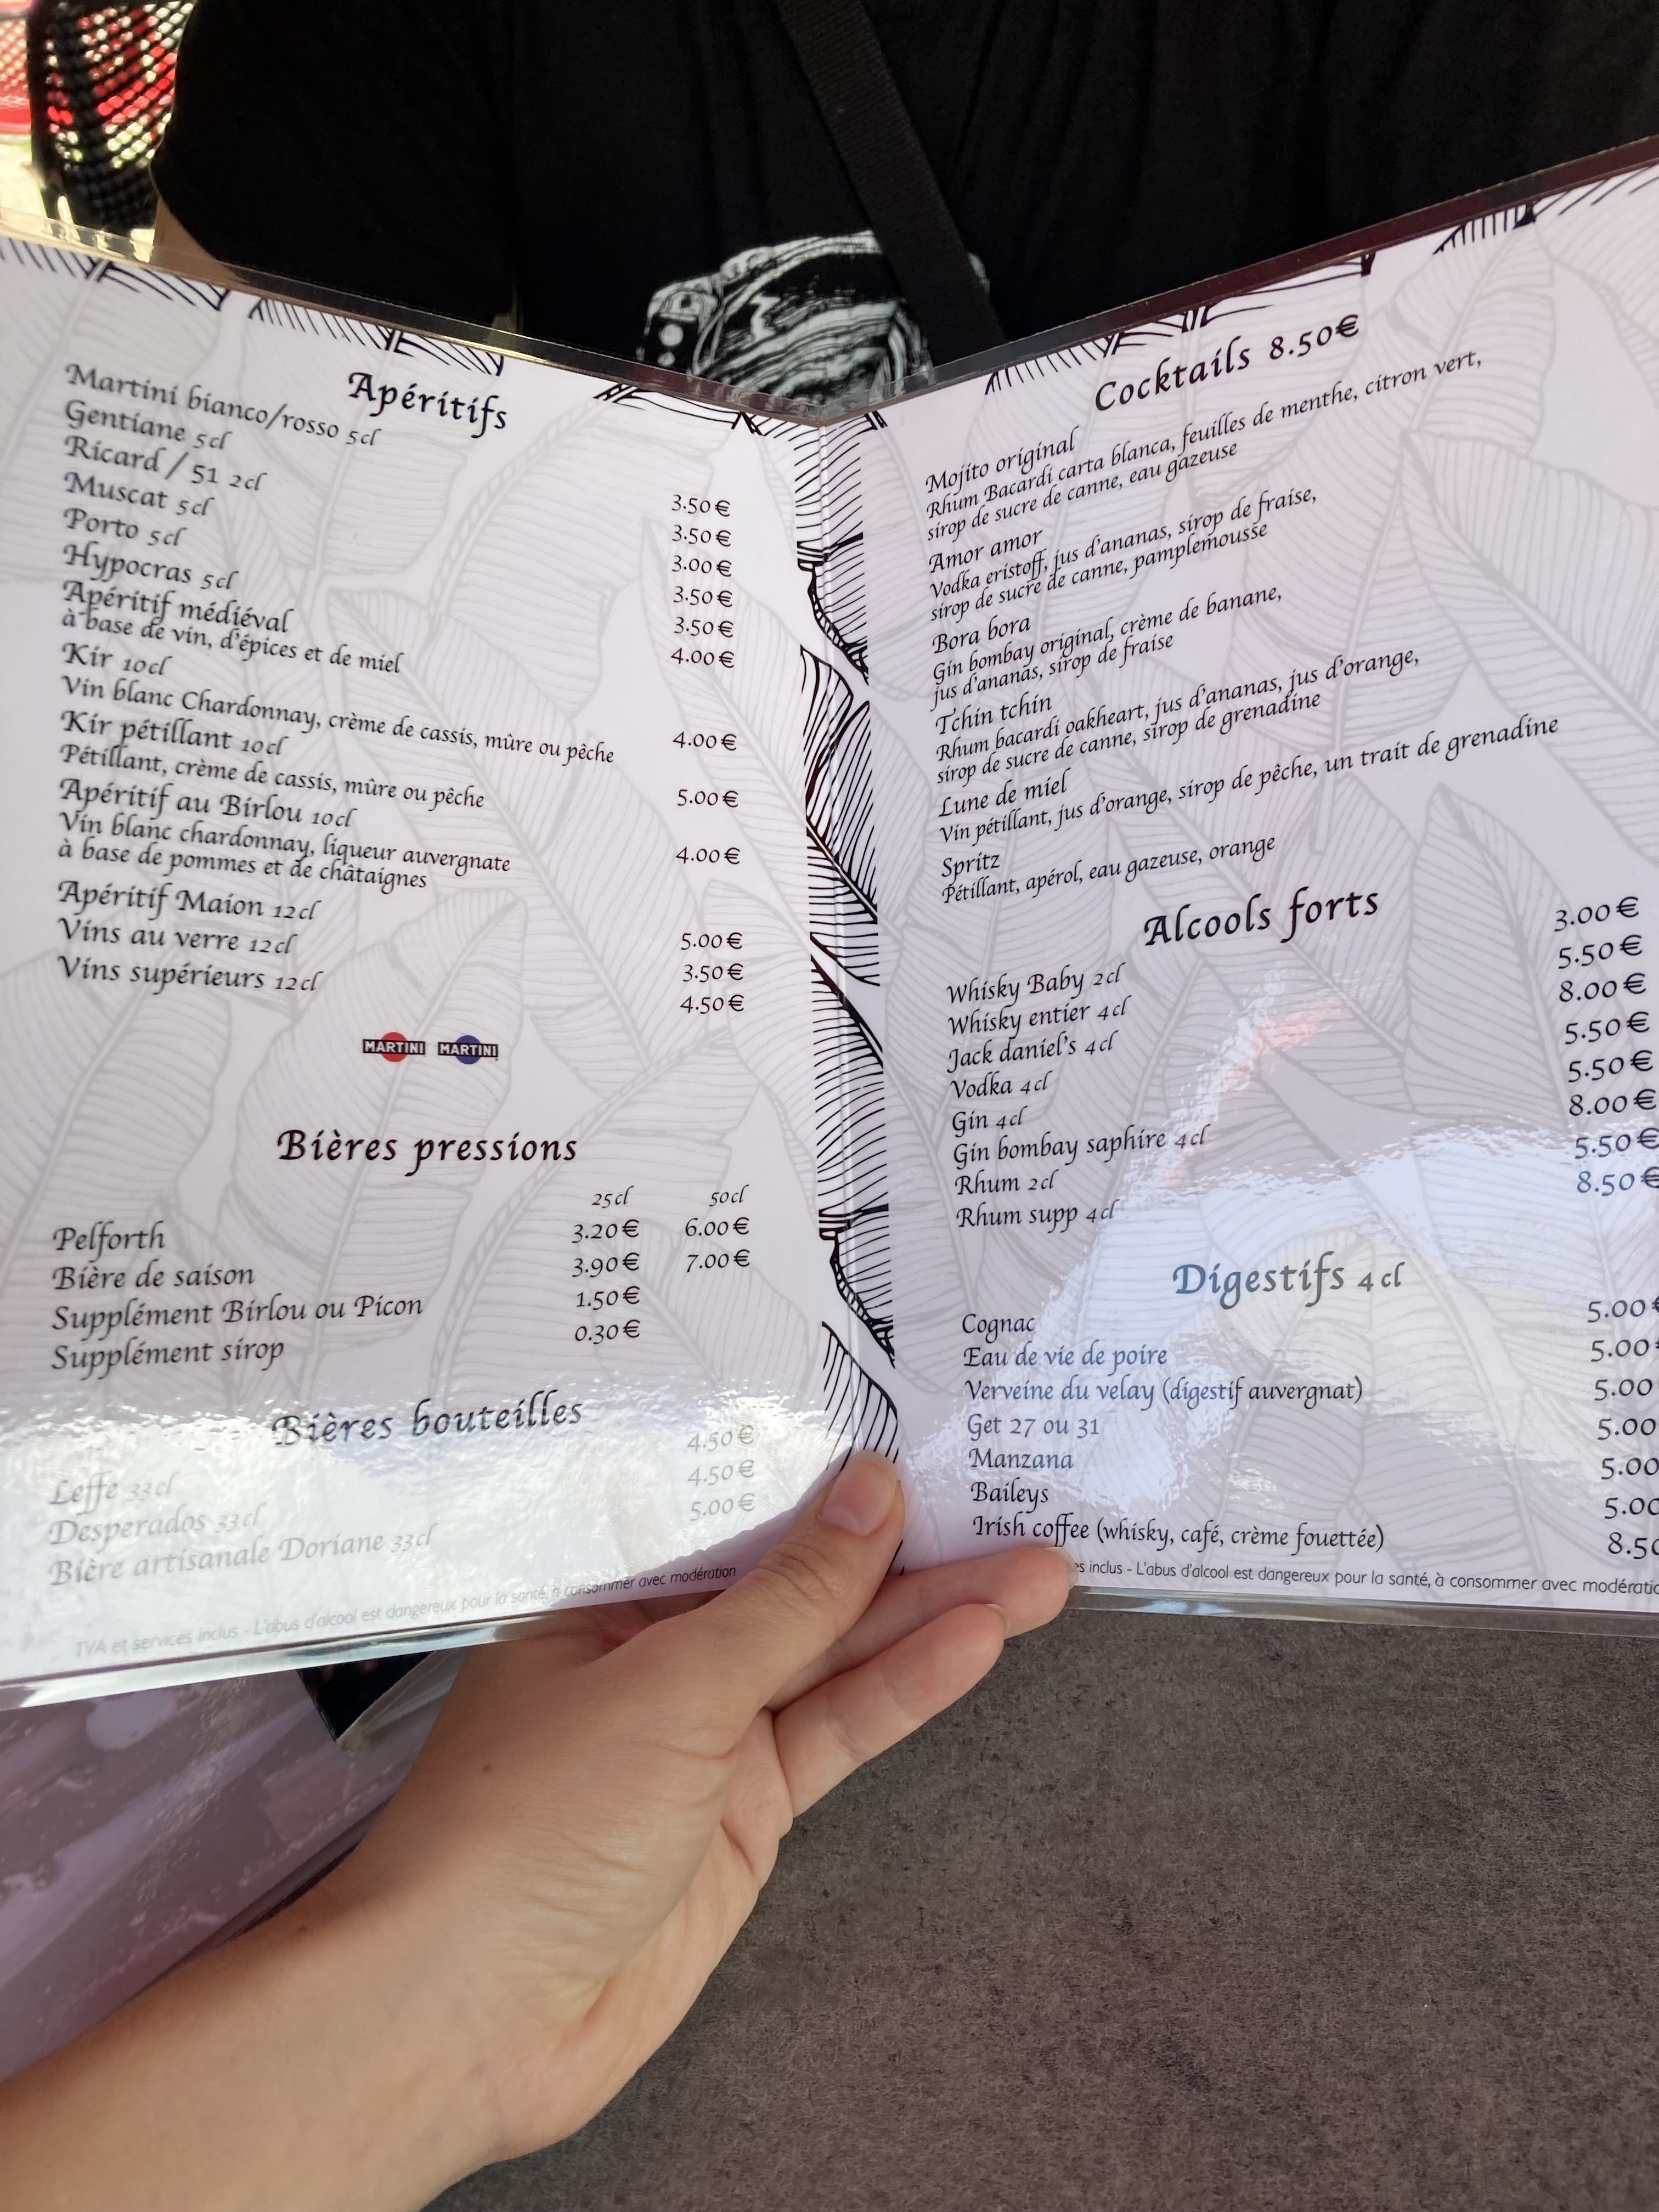 Apéritifs
Martini bianco/rosso 5cl 3.50€
Gentiane 5cl 3.50€
Ricard / 51 2cl 3.00€
Muscat 5cl 3.50€
Porto 5cl 3.50€
Hypocras 5cl 4.00€
Apéritif médiéval
à base de vin, d'épices et de miel
Kir 10cl 4.00€
Vin blanc Chardonnay, crème de cassis, mûre ou pêche
Kir pétillant 10cl 5.00€
Pétillant, crème de cassis, mûre ou pêche
Apéritif au Birlou 10cl 4.00€
Vin blanc chardonnay, liqueur auvergnate
à base de pommes et de châtaignes
Apéritif Maion 12cl 5.00€
Vins au verre 12cl 3.50€
Vins supérieurs 12cl 4.50€
MARTINI MARTINI
Bières pressions
25cl 50cl
Pelforth 3.20€ 6.00€
Bière de saison 3.90€ 7.00€
Supplément Birlou ou Picon 1.50€
Supplément sirop 0.30€
Bières bouteilles
Leffe 33cl 4.50€
Desperados 33cl 4.50€
Bière artisanale Doriane 33cl 5.00€
TVA et services inclus - L'abus d'alcool est dangereux pour la santé, à consommer avec modération
Cocktails 8.50€
Mojito original
Rhum Bacardi carta blanca, feuilles de menthe, citron vert,
sirop de sucre de canne, eau gazeuse
Amor amor
Vodka eristoff, jus d'ananas, sirop de fraise,
sirop de sucre de canne, pamplemousse
Bora bora
Gin bombay original, crème de banane,
jus d'ananas, sirop de fraise
Tchin tchin
Rhum bacardi oakheart, jus d'ananas, jus d'orange,
sirop de sucre de canne, sirop de grenadine
Lune de miel
Vin pétillant, jus d'orange, sirop de pêche, un trait de grenadine
Spritz
Pétillant, apérol, eau gazeuse, orange
Alcools forts
Whisky Baby 2cl 3.00€
Whisky entier 4cl 5.50€
Jack daniel's 4cl 8.00€
Vodka 4cl 5.50€
Gin 4cl 5.50€
Gin bombay saphire 4cl 8.00€
Rhum 2cl 5.50€
Rhum supp 4cl 8.50€
Digestifs 4cl
Cognac 5.00€
Eau de vie de poire 5.00
Verveine du velay (digestif auvergnat) 5.00
Get 27 ou 31 5.00
Manzana 5.00
Baileys 5.00
Irish coffee (whisky, café, crème fouettée) 8.50
inclus - L'abus d'alcool est dangereux pour la santé, à consommer avec